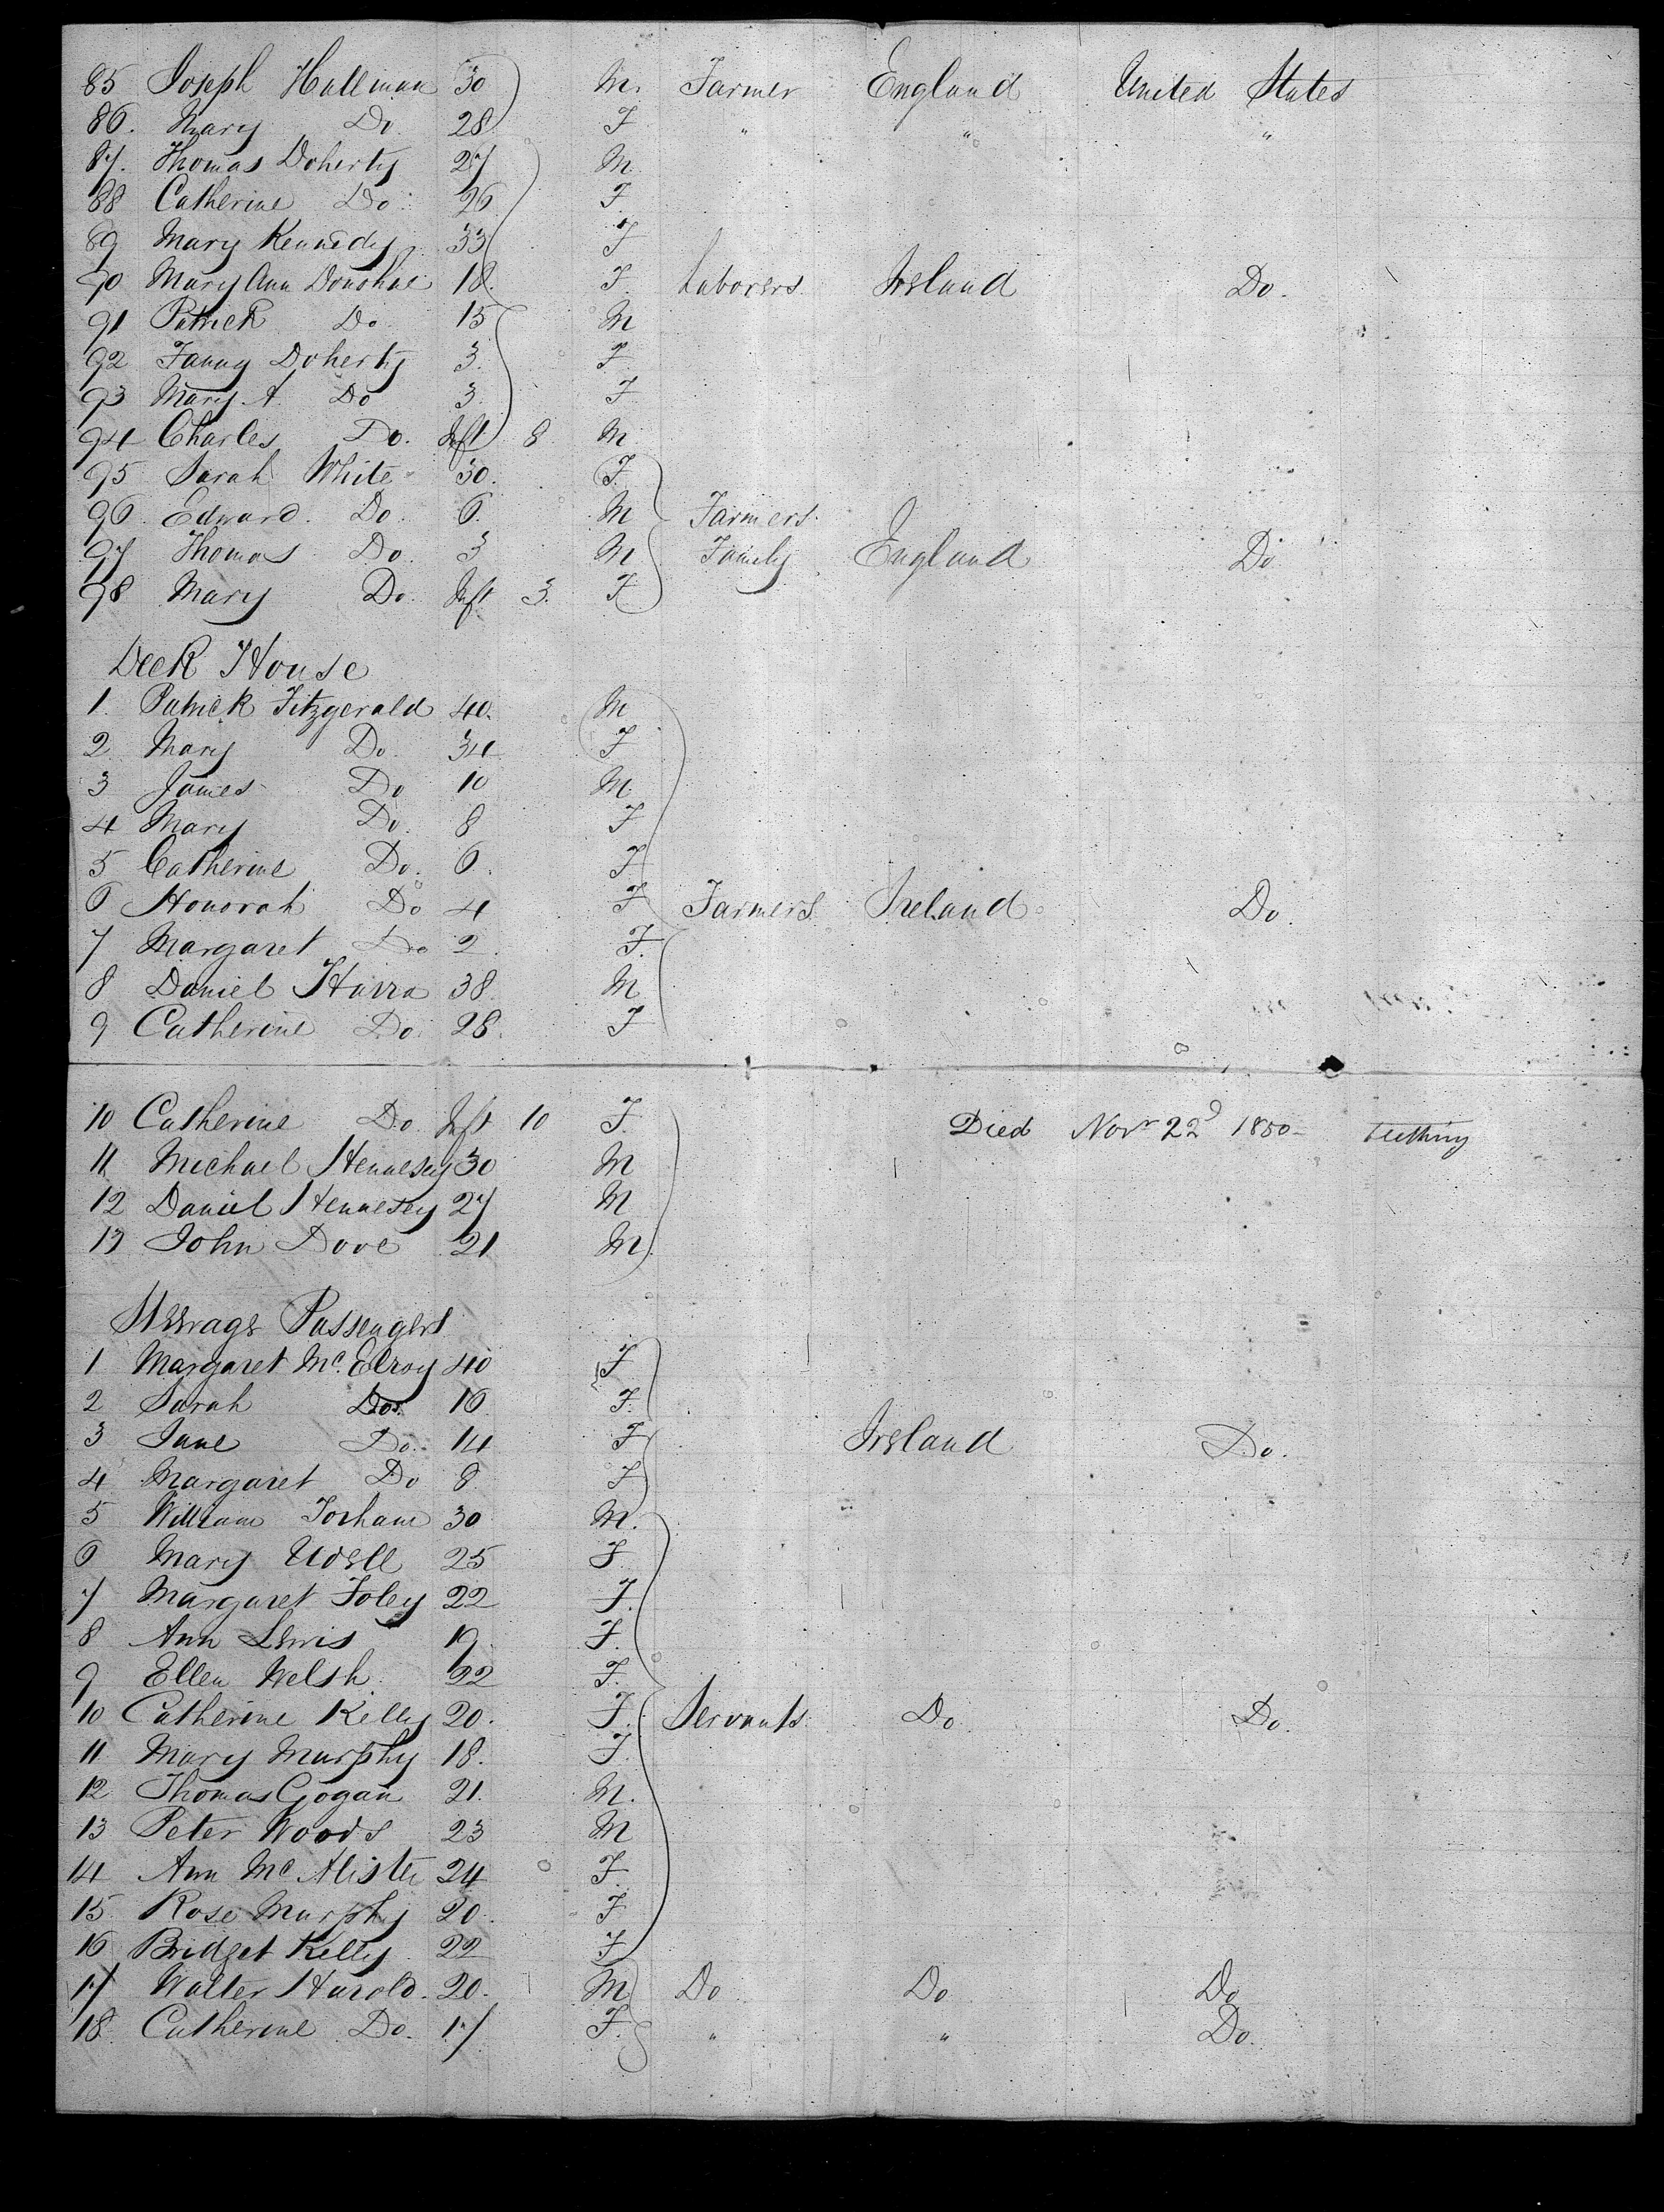 85 Joseph Hallman 30 M. Farmer England United States
86. Mary Do 28 F " " "
87. Thomas Doherty 27 M
88 Catherine Do 26 F
89 Mary Kennedy 33 F
90 Mary Ann Donohue 18. F. Laborers Ireland Do.
91 Patrick Do 15 M
92 Fanny Doherty 3. F
93 Mary A Do 3. F
94 Charles Do. Inft 8 M
95 Sarah White 30. F.
96. Edward. Do. 6. M Farmers
97 Thomas Do. 3 M Family England Do
98 Mary Do. Inft 3. F
Deck House
1. Patrick Fitzgerald 40. M
2 Mary Do. 34 F
3 James Do 10 M.
4 Mary Do. 8 F
5 Catherine Do. 6. F
6 Honorah Do 4 F Farmers Ireland Do.
7 Margaret Do 2. F.
8 Daniel Harra 38. M
9 Catherine Do. 28. F
10 Catherine Do. Inft 10 F. Died Novr 22d 1850 – teething
11 Michael Hennesey 30 M
12 Daniel Hennesey 27 M
13 John Dove 21 M.
Steerage Passengers
1 Margaret Mc.Elroy 40 F
2 Sarah Do. 16 F.
3 Jane Do. 14 F Ireland Do.
4 Margaret Do 8 F
5 William 30 M.
6 Mary Udell 25 F
7 Margaret Foley 22 F.
8 Ann Lewis 19. F.
9 Ellen Welsh. 22 F.
10 Catherine Kelly 20. F. Servants Do Do.
11 Mary Murphy 18. F.
12 Thomas Gogan 21. M.
13 Peter Woods 23 M
14 Ann Mc Alister 24 F.
15. Rose Murphy 20. F
16 Bridget Kelly 22 F
17 Walter Harold. 20. M Do Do Do
18. Catherine Do. 17 F. " " Do.